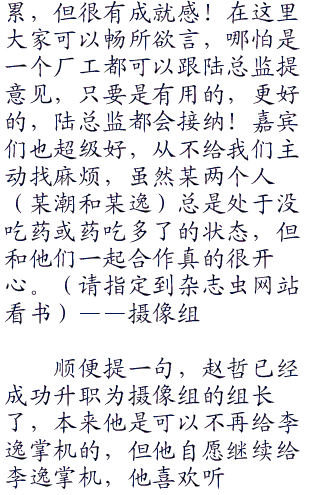 累，但很有成就感！在这里
大家可以畅所欲言，哪怕是
一个厂工都可以跟陆总监提
意见，只要是有用的，更好
的，陆总监都会接纳！嘉宾
们也超级好，从不给我们主
动找麻烦，虽然某两个人
（某潮和某逸）总是处于没
吃药或药吃多了的状态，但
和他们一起合作真的很开
心。（请指定到杂志虫网站
看书）——摄像组
顺便提一句，赵哲已经
成功升职为摄像组的组长
了，本来他是可以不再给李
逸掌机的，但他自愿继续给
李逸掌机，他喜欢听